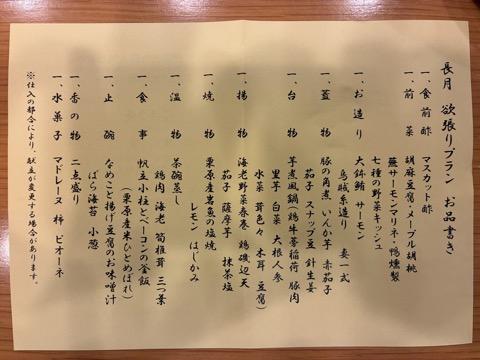 長月 欲張りプラン お品書き
一、食前酢 マスカット酢
一、前菜 胡麻豆腐・メープル胡桃
蕪サーモンマリネ・鴨燻製
七種の野菜キッシュ
一、お造り 烏賊糸造り 妻一式
大鉢鮪 サーモン
一、蓋物 豚の角煮 いんか芋 赤茄子
茄子 スナップ豆 針生姜
一、台物 芋煮風鍋(鶏牛蒡稲荷 豚肉
里芋 白菜 大根人参
水菜 茸色々 木耳 豆腐)
一、揚物 海老野菜春巻 鶏磯辺天
茄子 薩摩芋 抹茶塩
一、焼物 栗原産岩魚の塩焼
レモン はじかみ
一、温物 茶碗蒸し
鶏肉 海老 筍椎茸 三つ葉
一、食事 帆立小柱とベーコンの釜飯
(栗原産米ひとめぼれ)
一、止椀 なめこと揚げ豆腐のお味噌汁
ばら海苔 小葱
一、香の物 二点盛り
一、水菓子 マドレーヌ 柿 ピオーネ
※仕入の都合により、献立が変更する場合があります。